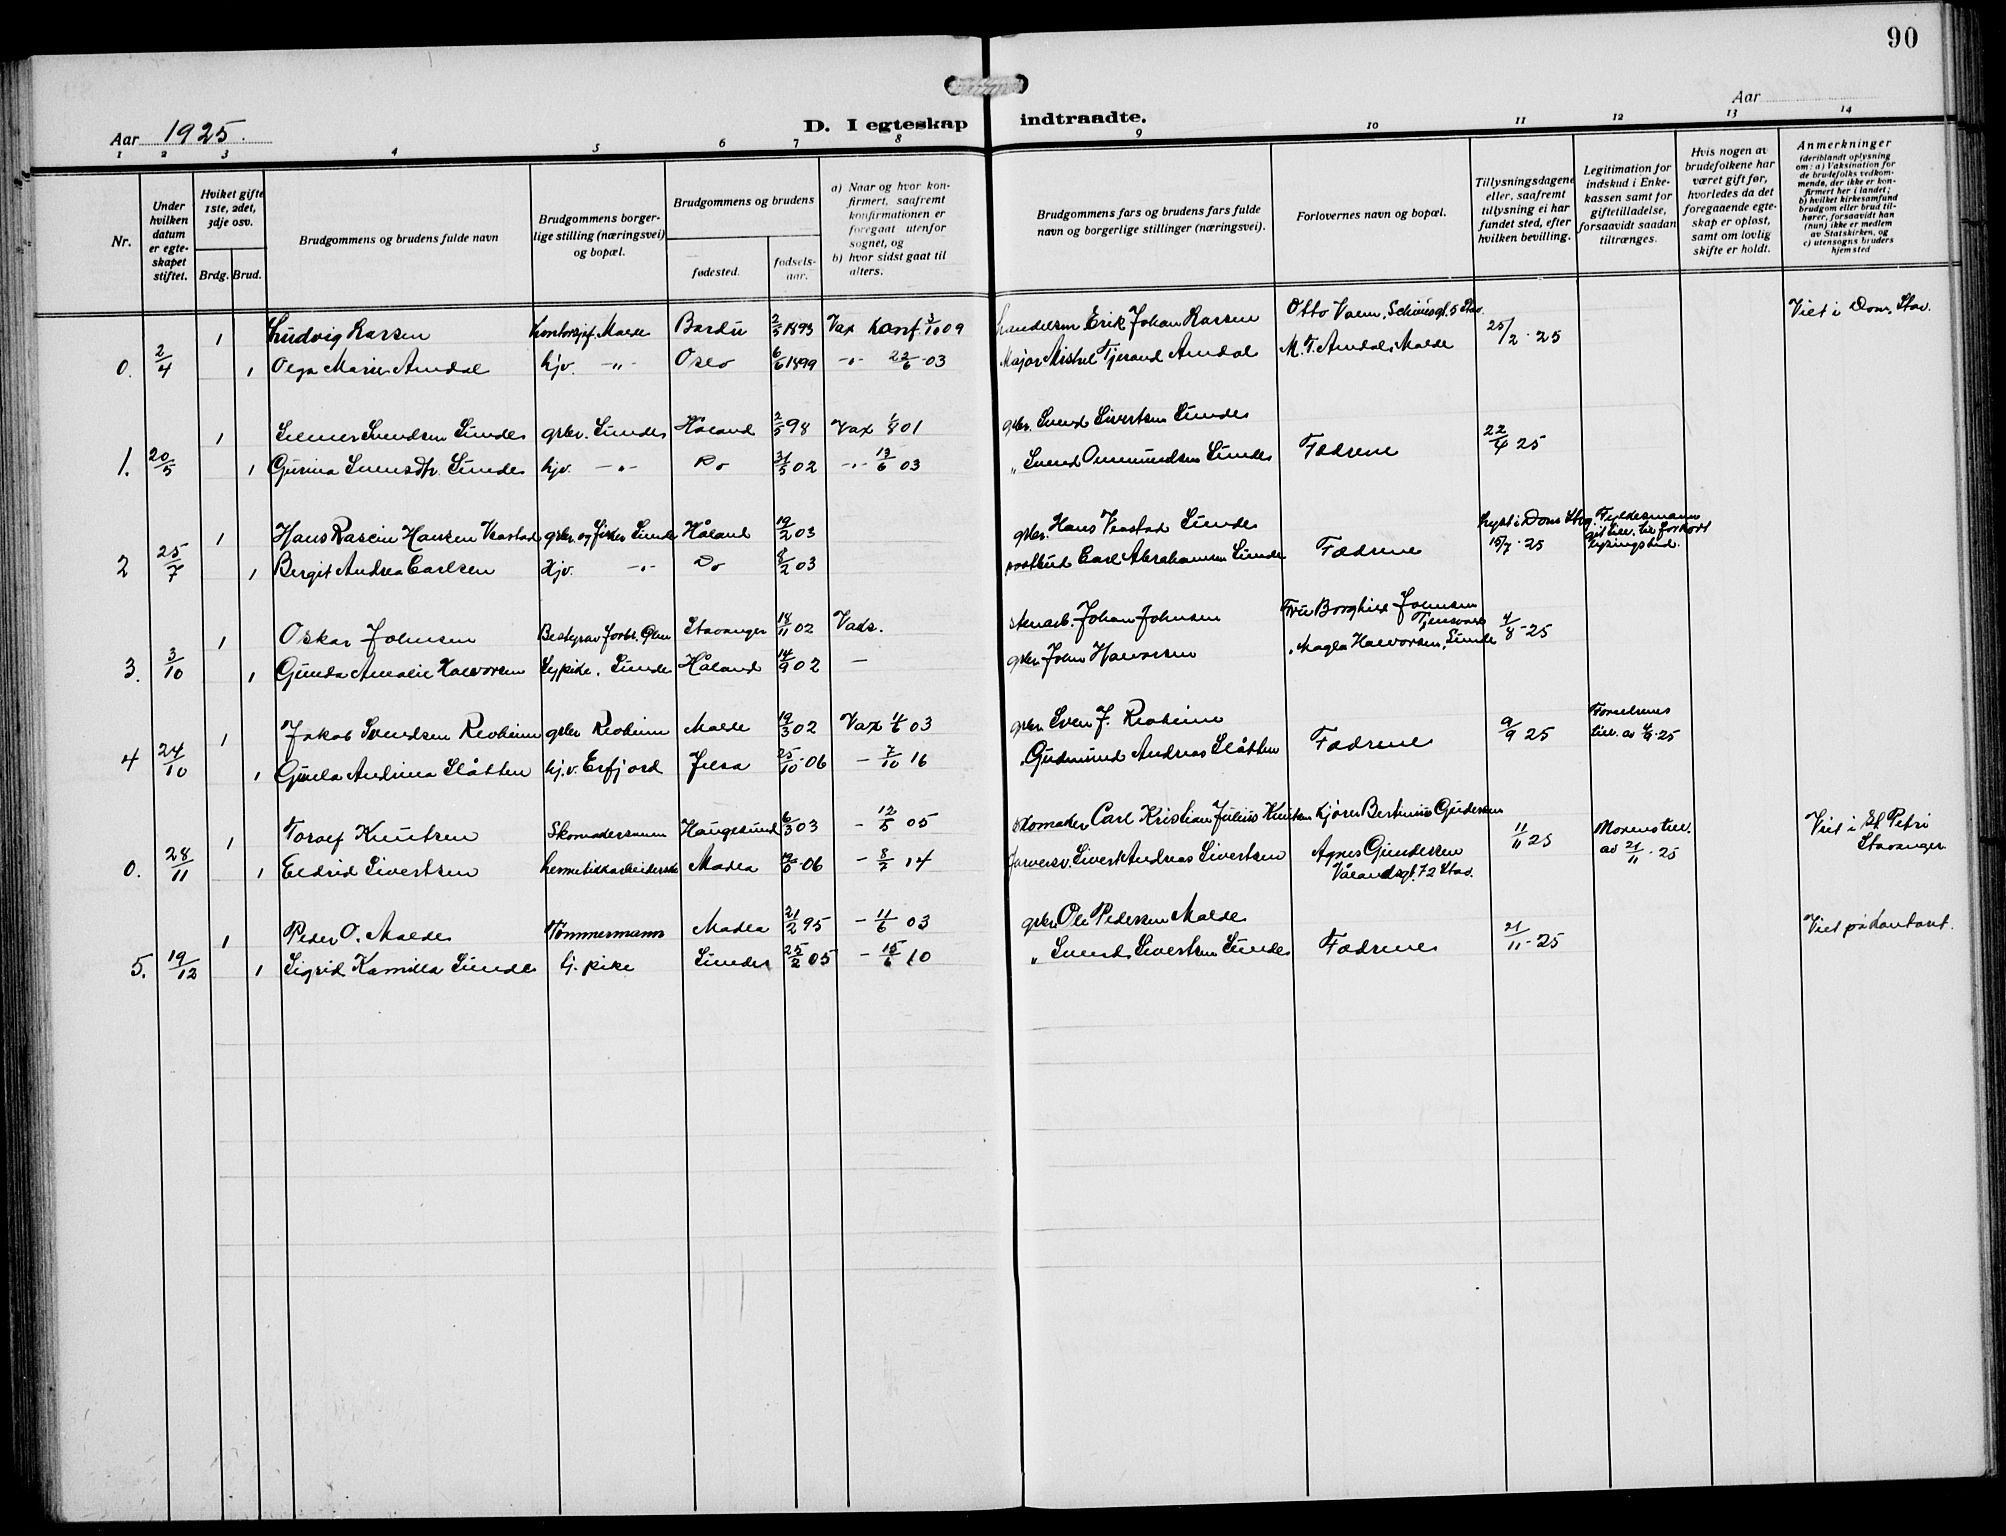 90
Aar 1925.
D. I egteskap indtraadte.
Aar
1 2 3 4 5 6 7 8 9 10 11 12 13 14
Nr.
Under hvilken datum er egteskapet stiftet.
Hviket gifte 1ste, 2det, 3dje osv.
Brdg. Brud.
Brudgommens og brudens fulde navn
Brudgommens borgerlige stilling (næringsvei) og bopæl.
Brudgommens og brudens
fødested.
fødselsaar.
a) Naar og hvor konfirmert, saafremt konfirmationen er foregaat utenfor sognet, og
b) hvor sidst gaat til alters.
Brudgommens fars og brudens fars fulde navn og borgerlige stillinger (næringsvei).
Forlovernes navn og bopæl.
Tillysningsdagene eller, saafremt tillysning ei har fundet sted, efter hvilken bevilling.
Legitimation for indskud i Enkekassen samt for giftetilladelse, forsaavidt saadan tiltrænges.
Hvis nogen av brudefolkene har været gift før, hvorledes da det foregaaende egteskap er opløst, samt om lovlig skifte er holdt.
Anmerkninger
(deriblandt oplysning om: a) Vaksination for de brudefolks vedkommende, der ikke er konfirmert her i landet; b) hvilket kirkesamfund brudgom eller brud tilhører, forsaavidt han (hun) ikke er medlem av Statskirken, og c) utensogns bruders hjemsted
1 Ludvig Larsen Kontorsjef. Malde Bardu 2/5 1893 Vax Konf. 3/10 09 Handelsm Erik Johan Larsen Otto Vaem, Schiøtsgt. 5 Stav. Viet i Dom, Stav.
0. 2/4 1 Olga Marie Amdal hjv. -"- Oslo 6/6 1899 -"- 22/6 03 Major Mikal Tjerand Amdal M. T. Amdal, Malde 25/2 · 25
1 Selmer Svendsen Sunde gsbr. Sunde Håland 2/5 98 Vax 1/8 01 gsbr. Svend Sivertsen Sunde
1. 20/5 1 Gurina Svensdtr. Sunde hjv. -"- Do 31/5 02 -"- 13/6 03 " Svend Ommundsen Sunde Fædrene 22/4 25
1 Hans Rasein Hansen Veastad gsbr. og fisker Sunde Håland 19/2 03 gsbr. Hans Veastad Sunde Lyst i Doms Stvg. Fyldesmann
2 25/7 1 Bergit Andrea Carlsen Hjv. -"- Do 8/2 03 postbud Carl Abrahamsen Sunde Fædrene 15/7 · 25 git till. til forkort lysningstid.
1 Oskar Johnsen Bestyrer forbr. Stavanger 18/11 02 Vads. stenarb. Johan Johnsen Fru Borghild Johnsen Tjensvold
3. 3/10 1 Gunda Amalie Halvorsen Sypike. Sunde Håland 14/9 02 — gsbr John Halvorsen " Magla Halvorsen, Sunde 4/8 - 25
1 Jakob Svendsen Revheim gsbr Revheim Malde 19/3 02 Vax 4/6 03 gsbr. Sven J. Revheim Foreldrenes
4 24/10 1 Gunla Andrina Slåtten hj.v. Erfjord Jelsa 25/10 · 06 - 7/10 16 " Gudmund Andreas Slåtten Fædrene 9/9 25
1 Toralf Knutsen Skomakersvenn Haugesund 6/3 03 - 12/5 05 Skomaker Carl Kristian Julius Knutsen Kjører Bertinius Gundersen Viet i St Petri
0. 28/11 1 Eldrid Sivertsen hermetikkarbeiderske Madla 06 - 8/7 14 Sivert Andreas Sivertsen Agnes Gundersen Vålandsgt. 72 Stav. 11/11 25 Morens till. av 21/11 · 25 Stavanger
1 Peder O. Malde Tømmermann Madla 21/2 95 - 11/6 03 gsbr Ole Pedersen Malde Viet på kontoret.
5. 19/12 1 Sigrid Kamilla Sunde hj. pike Sunde 25/2 05 - 15/6 10 " Svend Sivertsen Sunde Fædrene 21/11 - 25